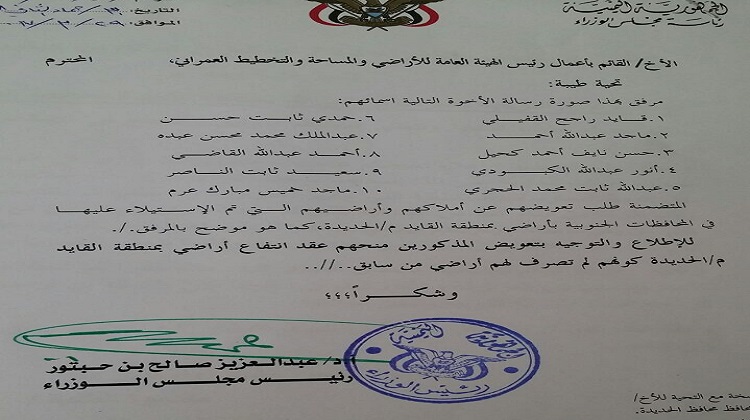 الجمهورية اليمنية
رئاسة مجلس الوزراء
التاريخ:
الموافق:
الأخ/ القائم بأعمال رئيس الهيئة العامة للأراضي والمساحة والتخطيط العمراني، المحترم
تحية طيبة:
مرفق بهذا صورة رسالة الأخوة التالية اسمائهم:
١. قايد راجح القفيلي
٢. ماجد عبدالله أحمد
٣. حسن نايف أحمد كحيل
٤. أنور عبدالله الكبودي
٥. عبدالله ثابت محمد الحجري
٦. حمدي ثابت حسن
٧. عبدالملك محمد محسن عبده
٨. أحمد عبدالله القاضي
٩. سعيد ثابت الناصر
١٠. ماجد خميس مبارك عرم
المتضمنة طلب تعويضهم عن أملاكهم وأراضيهم التي تم الإستيلاء عليها
في المحافظات الجنوبية بأراضي بمنطقة القايد م/الحديدة، كما هو موضح بالمرفق./.
للإطلاع والتوجيه بتعويض المذكورين منحهم عقد انتفاع أراضي بمنطقة القايد
م/الحديدة كونهم لم تصرف لهم أراضي من سابق..//..
وشكراً؛؛؛
أ.د/ عبدالعزيز صالح بن حبتور
رئيس مجلس الوزراء
رئيس الوزراء
مع التحية للأخ/
محافظ الحديدة.